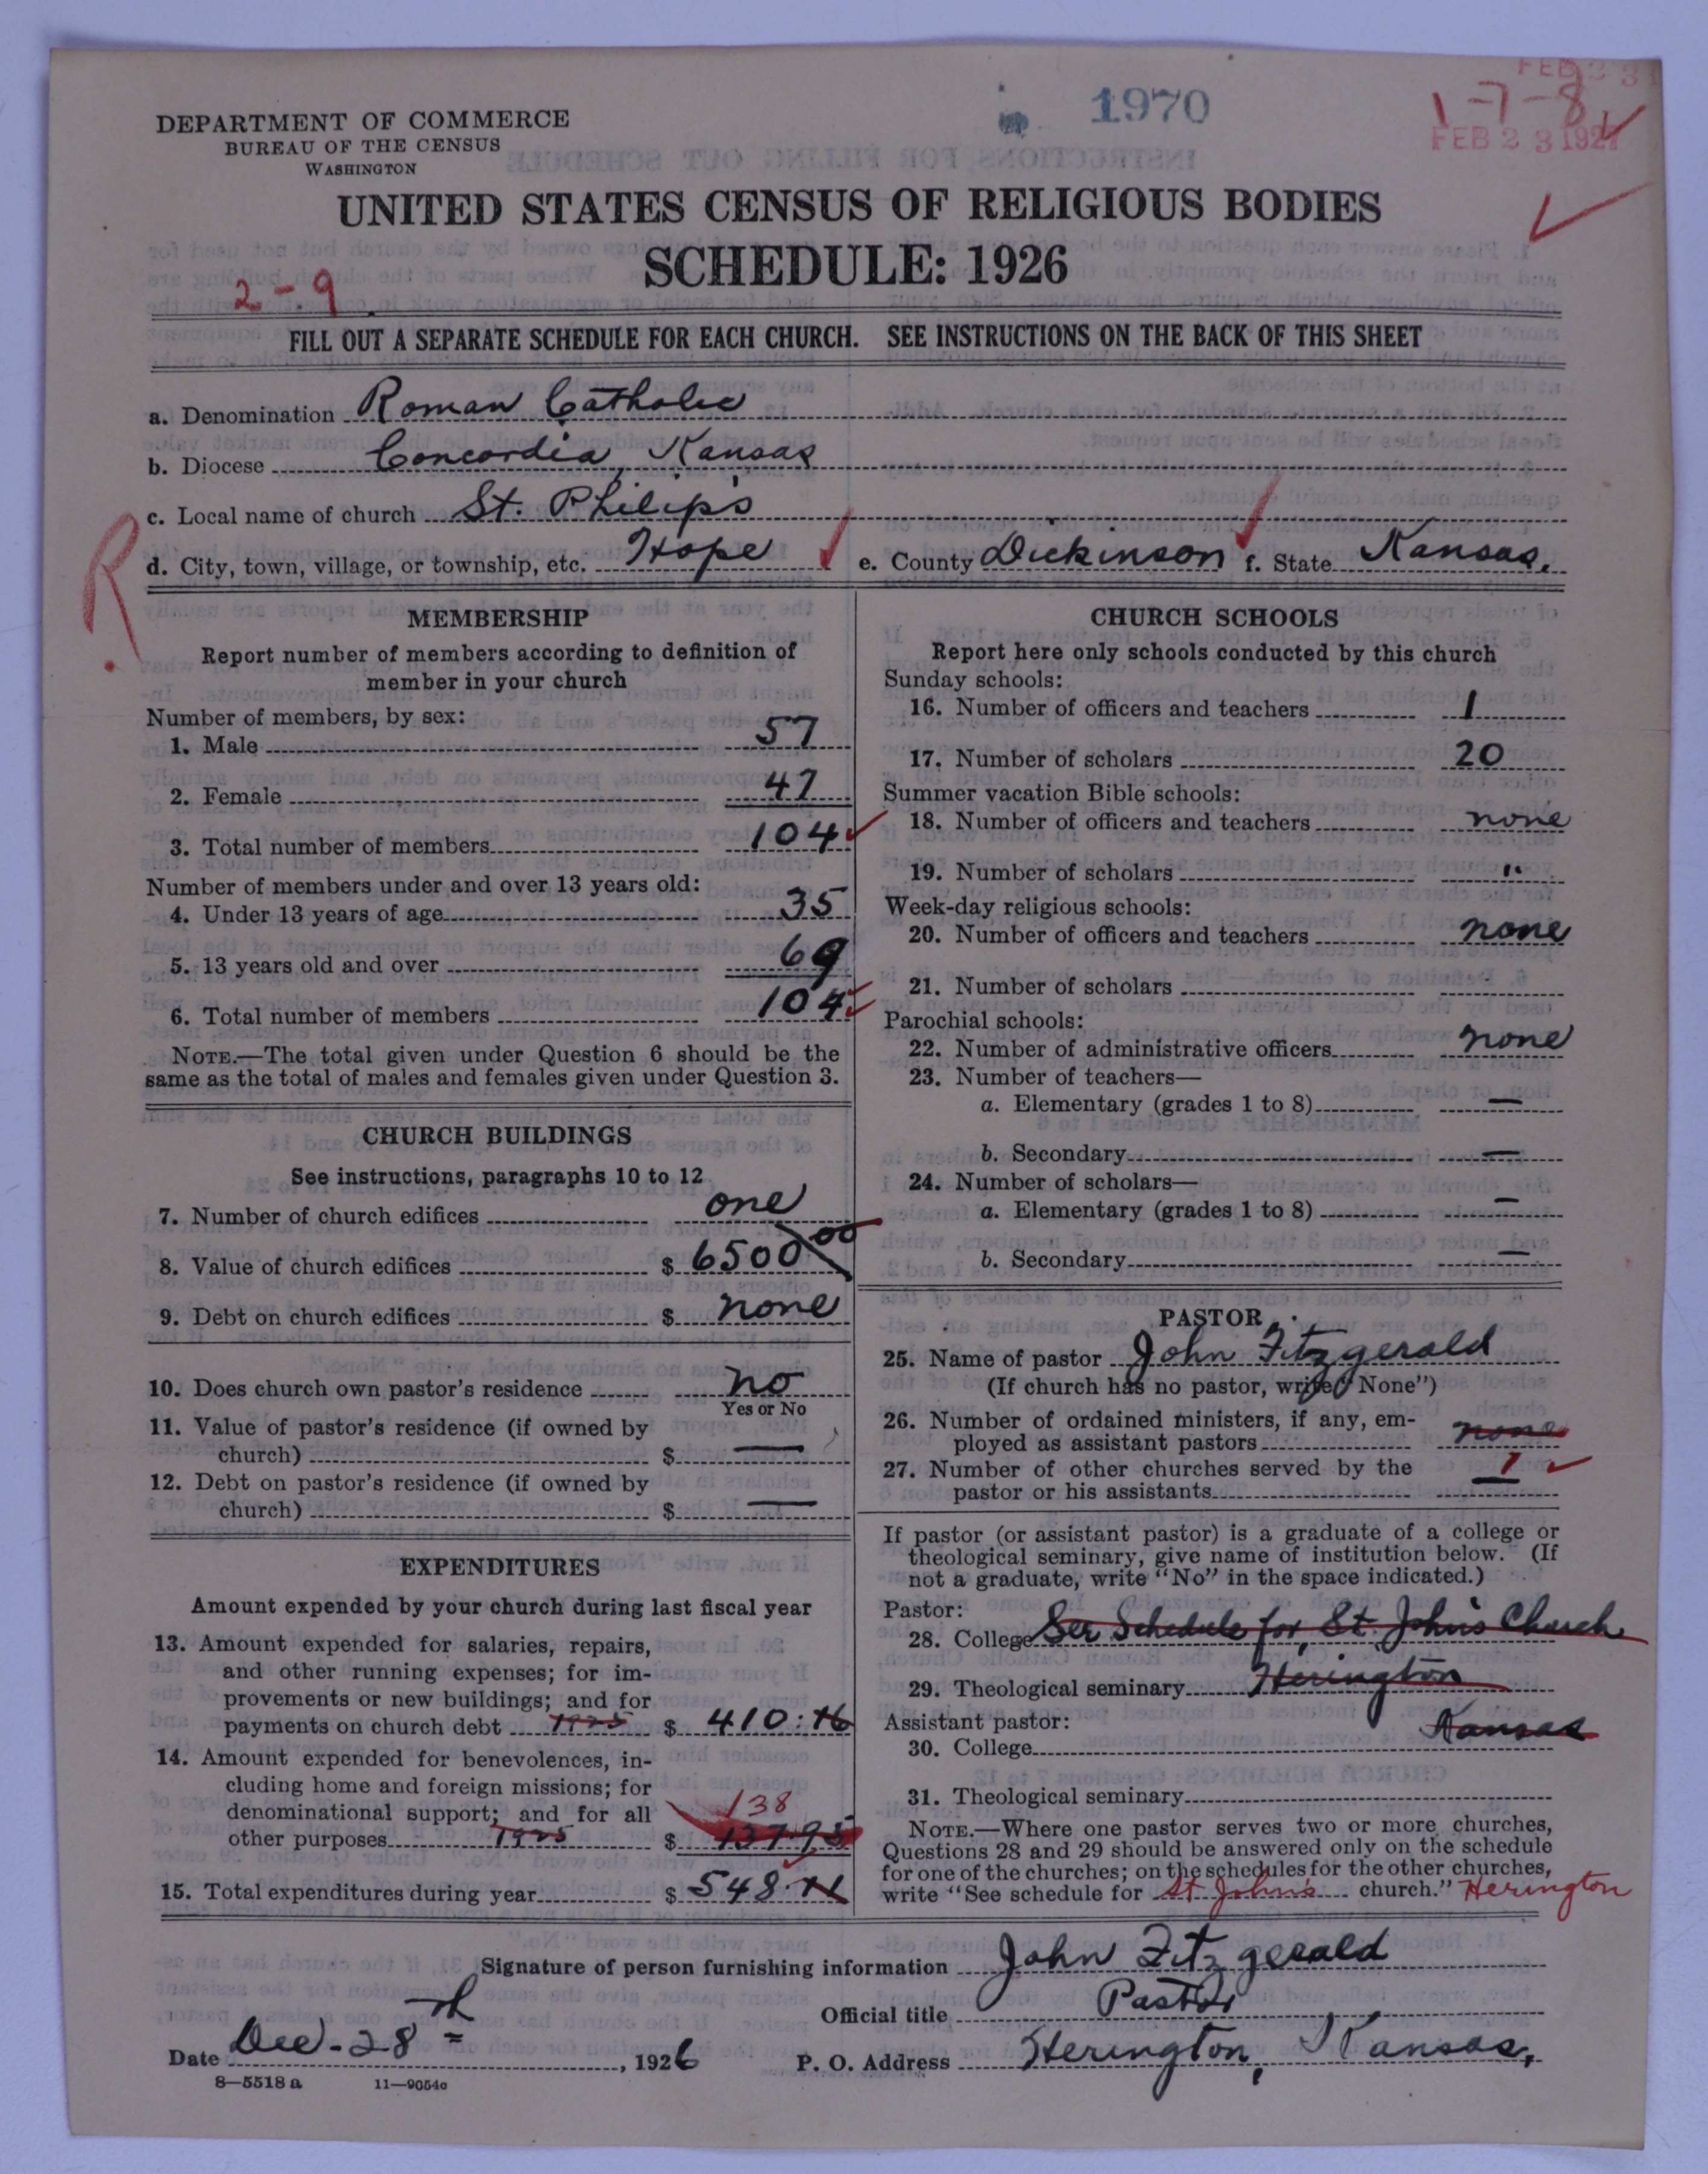 1970
FEB 2 3
1-7-8
FEB 2 3 1927
DEPARTMENT OF COMMERCE
BUREAU OF THE CENSUS
WASHINGTON
UNITED STATES CENSUS OF RELIGIOUS BODIES
SCHEDULE: 1926
2-9
FILL OUT A SEPARATE SCHEDULE FOR EACH CHURCH. SEE INSTRUCTIONS ON THE BACK OF THIS SHEET
a. Denomination Roman Catholic
b. Diocese Concordia, Kansas
c. Local name of church St. Philip's
R
d. City, town, village, or township, etc. Hope e. County Dickinson f. State Kansas.
MEMBERSHIP
Report number of members according to definition of
member in your church
Number of members, by sex:
1. Male 57
2. Female 47
3. Total number of members 104
Number of members under and over 13 years old:
4. Under 13 years of age 35
5. 13 years old and over 69
6. Total number of members 104
NOTE.—The total given under Question 6 should be the
same as the total of males and females given under Question 3.
CHURCH BUILDINGS
See instructions, paragraphs 10 to 12
7. Number of church edifices one
8. Value of church edifices $ 6500 00
9. Debt on church edifices $ none
10. Does church own pastor's residence no
Yes or No
11. Value of pastor's residence (if owned by
church) $ —
12. Debt on pastor's residence (if owned by
church) $ —
EXPENDITURES
Amount expended by your church during last fiscal year
13. Amount expended for salaries, repairs,
and other running expenses; for im-
provements or new buildings; and for
payments on church debt 1925 $ 410:16
14. Amount expended for benevolences, in-
cluding home and foreign missions; for
denominational support; and for all 138
other purposes 1925 $ 137.95
15. Total expenditures during year $ 548.11
CHURCH SCHOOLS
Report here only schools conducted by this church
Sunday schools:
16. Number of officers and teachers 1
17. Number of scholars 20
Summer vacation Bible schools:
18. Number of officers and teachers none
19. Number of scholars "
Week-day religious schools:
20. Number of officers and teachers none
21. Number of scholars
Parochial schools:
22. Number of administrative officers none
23. Number of teachers—
a. Elementary (grades 1 to 8) —
b. Secondary —
24. Number of scholars—
a. Elementary (grades 1 to 8) —
b. Secondary —
PASTOR
25. Name of pastor John Fitzgerald
(If church has no pastor, write "None")
26. Number of ordained ministers, if any, em-
ployed as assistant pastors none
27. Number of other churches served by the 1
pastor or his assistants —
If pastor (or assistant pastor) is a graduate of a college or
theological seminary, give name of institution below. (If
not a graduate, write "No" in the space indicated.)
Pastor:
28. College See Schedule for St. John's Church
29. Theological seminary Herington
Assistant pastor: Kansas
30. College
31. Theological seminary
NOTE.—Where one pastor serves two or more churches,
Questions 28 and 29 should be answered only on the schedule
for one of the churches; on the schedules for the other churches,
write "See schedule for St John's church." Herington
Signature of person furnishing information John Fitzgerald
Official title Pastor
Date Dec - 28th, 1926 P. O. Address Herington, Kansas.
8—5518 a 11—9054o